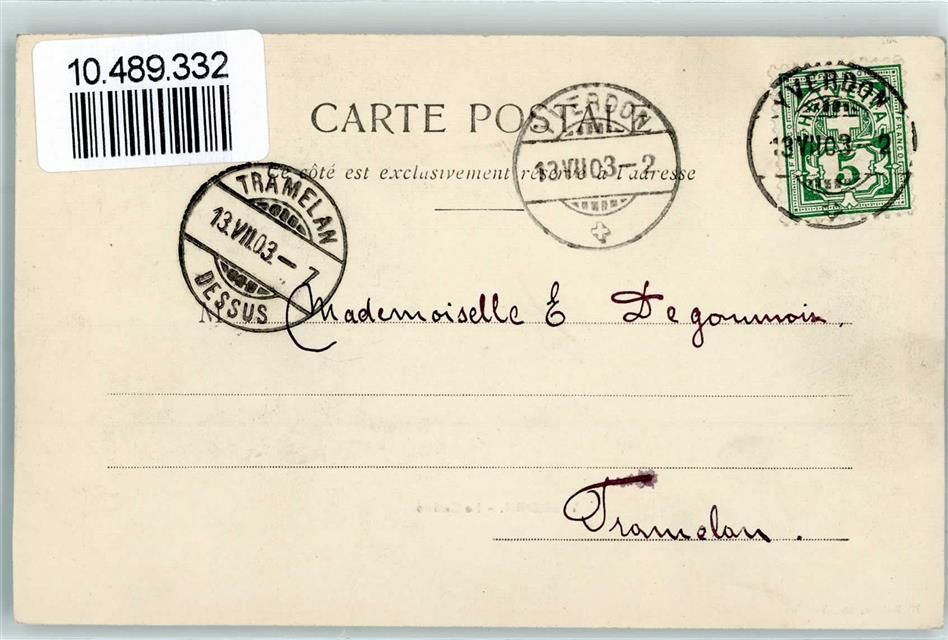 10.489.332
CARTE POSTALE
Ce côté est exclusivement réservé à l'adresse
YVERDON
13.VII.03–2
YVERDON
13.VII.03–2
FRANCO
5
TRAMELAN
13.VII.03.–7
DESSUS
M
Mademoiselle E Degoumois.
Tramelan.